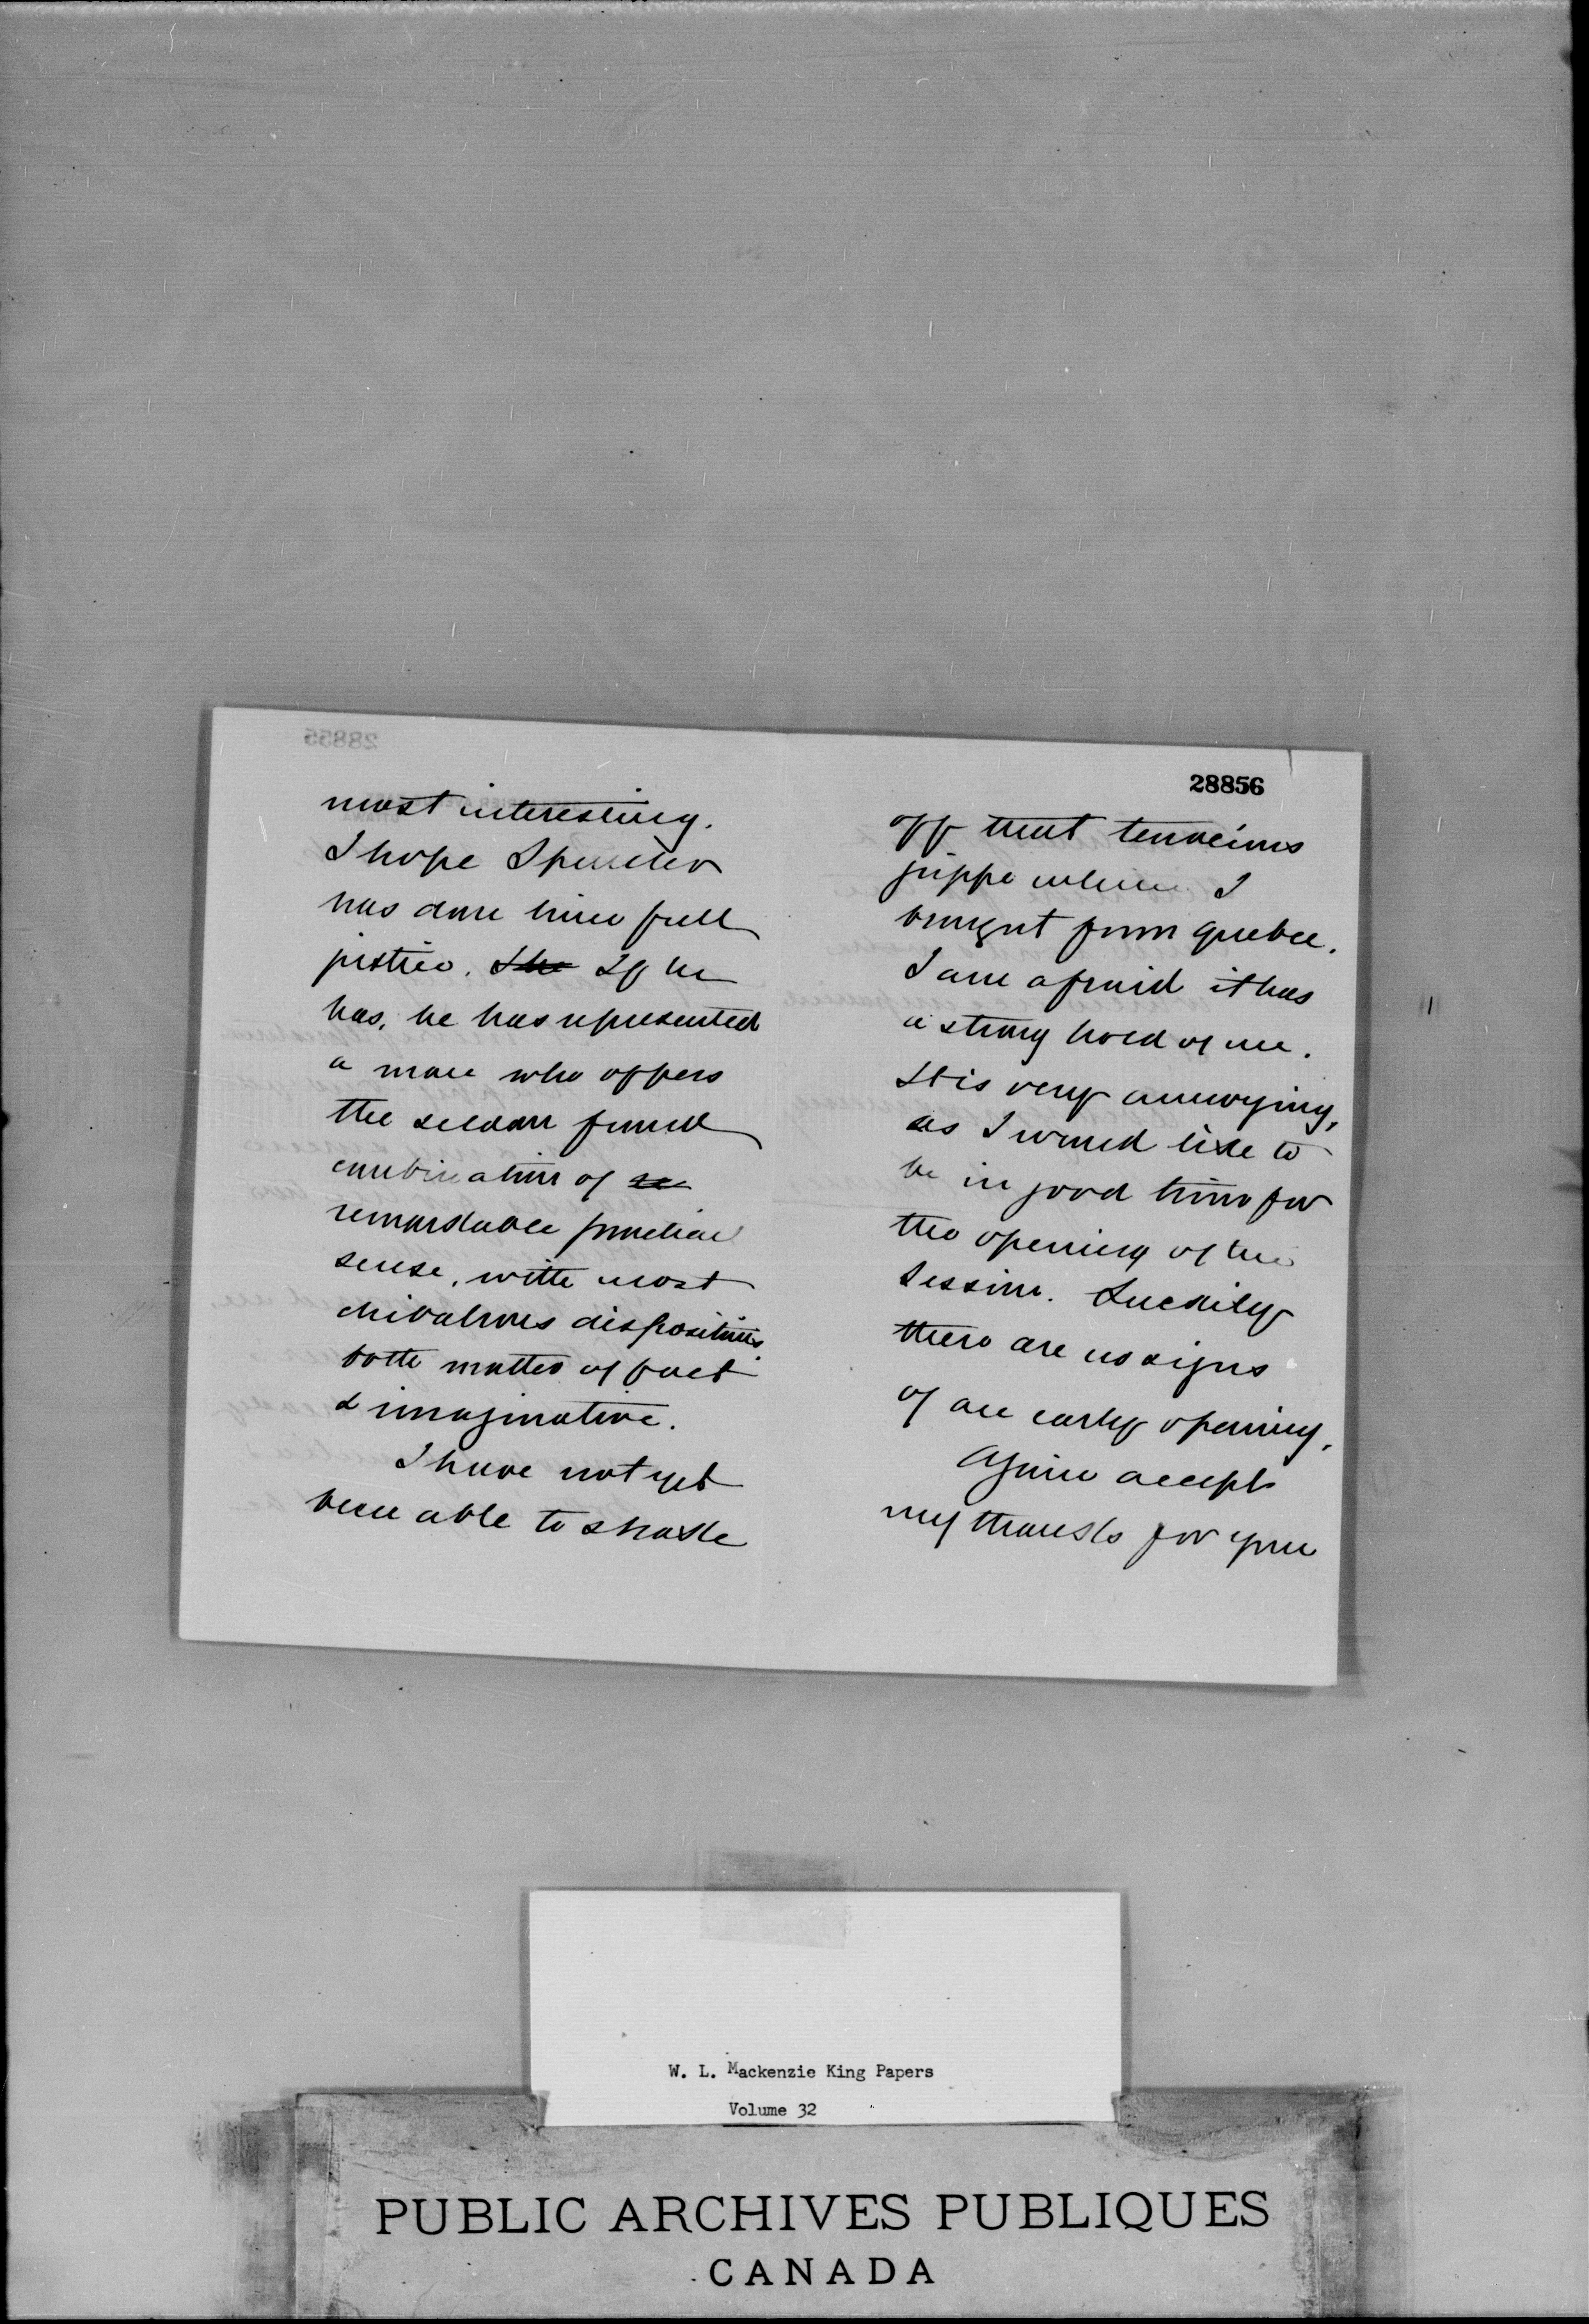 28855
most interesting.
I hope Spender
has done him full
justice. The If he
has, he has represented
a man who offers
the seldom found
combination of
remarkable practical
sense, with most
chivalrous dispositions,
both matter of fact
& imaginative.
I have not yet
been able to shake
28856
off that tenacious
grippe which I
brought from Quebec.
I am afraid it has
a strong hold of me.
It is very annoying,
as I would like to
be in good time for
the opening of the
Session. Luckily
there are no signs
of an early opening.
Again accept
my thanks for your
W. L. Mackenzie King Papers
Volume 32
PUBLIC ARCHIVES PUBLIQUES
CANADA